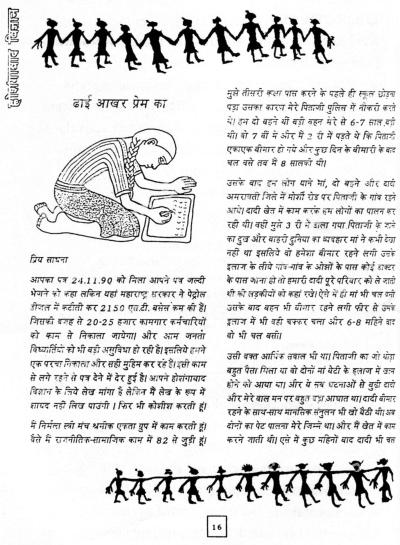 होशंगाबाद विज्ञान
ढाई आखर प्रेम का
प्रिय साधना
आपका पत्र 24.11.90 को मिला आपने पत्र जल्दी
भेजने को कहा लेकिन यहां महाराष्ट्र सरकार ने पेट्रोल
डीजल में कटौती कर 2150 एस.टी. बसेस कम की हैं।
जिसकी वजह से 20-25 हजार कामगार कर्मचारियों
को काम से निकाला जायेगा। और आम जनता
विद्यार्थियों को भी बड़ी असुविधा हो रही है। इसलिये हमने
एक परचा निकाला और सही मुहिम कर रहे हैं। इसी काम
से लगे रहने से पत्र देने में देर हुई है। आपने होशंगाबाद
विज्ञान के लिये लेख मांगा है लेकिन मैं लेख के रूप में
शायद नहीं लिख पाउंगी। फिर भी कोशीश करती हूं।
मैं निर्मला स्त्री मंच श्रमीक एकता ग्रुप में काम करती हूं।
वैसे मैं राजनीतिक-सामाजिक काम में 82 से जुड़ी हूं।
मुझे तीसरी कक्षा पास करने के पहले ही स्कूल छोड़ना
पड़ा उसका कारण मेरे पिताजी पुलिस में नौकरी करते
थे। हम दो बहने थीं बड़ी बहन मेरे से 6-7 साल बड़ी
थी। वो 7 वीं में और मैं 3 री में पढ़ते थे कि पिताजी
एकाएक बीमार हो गये और कुछ दिन के बीमारी के बाद
चल बसे तब मैं 8 साल की थी।
उसके बाद हम लोग याने मां, दो बहने और दादी
अमरावती जिले में मोर्शी रोड पर पिताजी के गांव रहने
आये। दादी खेत में काम करके हम लोगों का पालन कर
रही थी। वहीं मुझे 3 री में डाला गया पिताजी के जाने
का दुख और बाहरी दुनिया का व्यवहार मां ने कभी देखा
नहीं था इसलिये वो हमेशा बीमार रहने लगी उसके
इलाज के लीये गांव-गांव के ओझों के पास कोई डाक्टर
के पास जाना हो तो हमारी दादी पूरे परिवार को ले जाती
थी की लड़कीयों को कहां रखे। ऐसे में ही मां भी चल बसी
उसके बाद बहन भी बीमार रहने लगी फीर से उसके
इलाज में भी वही चक्कर चला और 6-8 महिने बाद
वो भी चल बसी।
उसी वक्त आर्थिक सवाल भी था। पिताजी का जो थोड़ा
बहुत पैसा मिला था वो दोनों मां बेटी के इलाज में खत्म
होने को आया था। और ये सब घटनाओं से बुढ़ी दादी
और मेरे बाल मन पर बहुत बड़ा आघात था। दादी बीमार
रहने के साथ-साथ मानसिक संतुलन भी खो बैठी थी। अब
दोनों का पेट पालना मेरे जिम्मे था। और मैं खेत में काम
करने जाती थी। ऐसे में कुछ महिनों बाद दादी भी चल
16